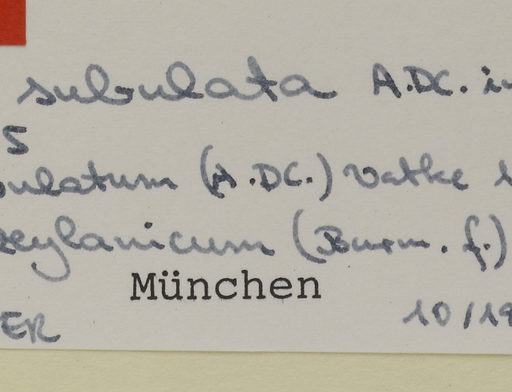 subulata A.DC. in
5
bulatum (A.DC.) Vatke
zeylanicum (Burm. f.)
München
ER 10/19